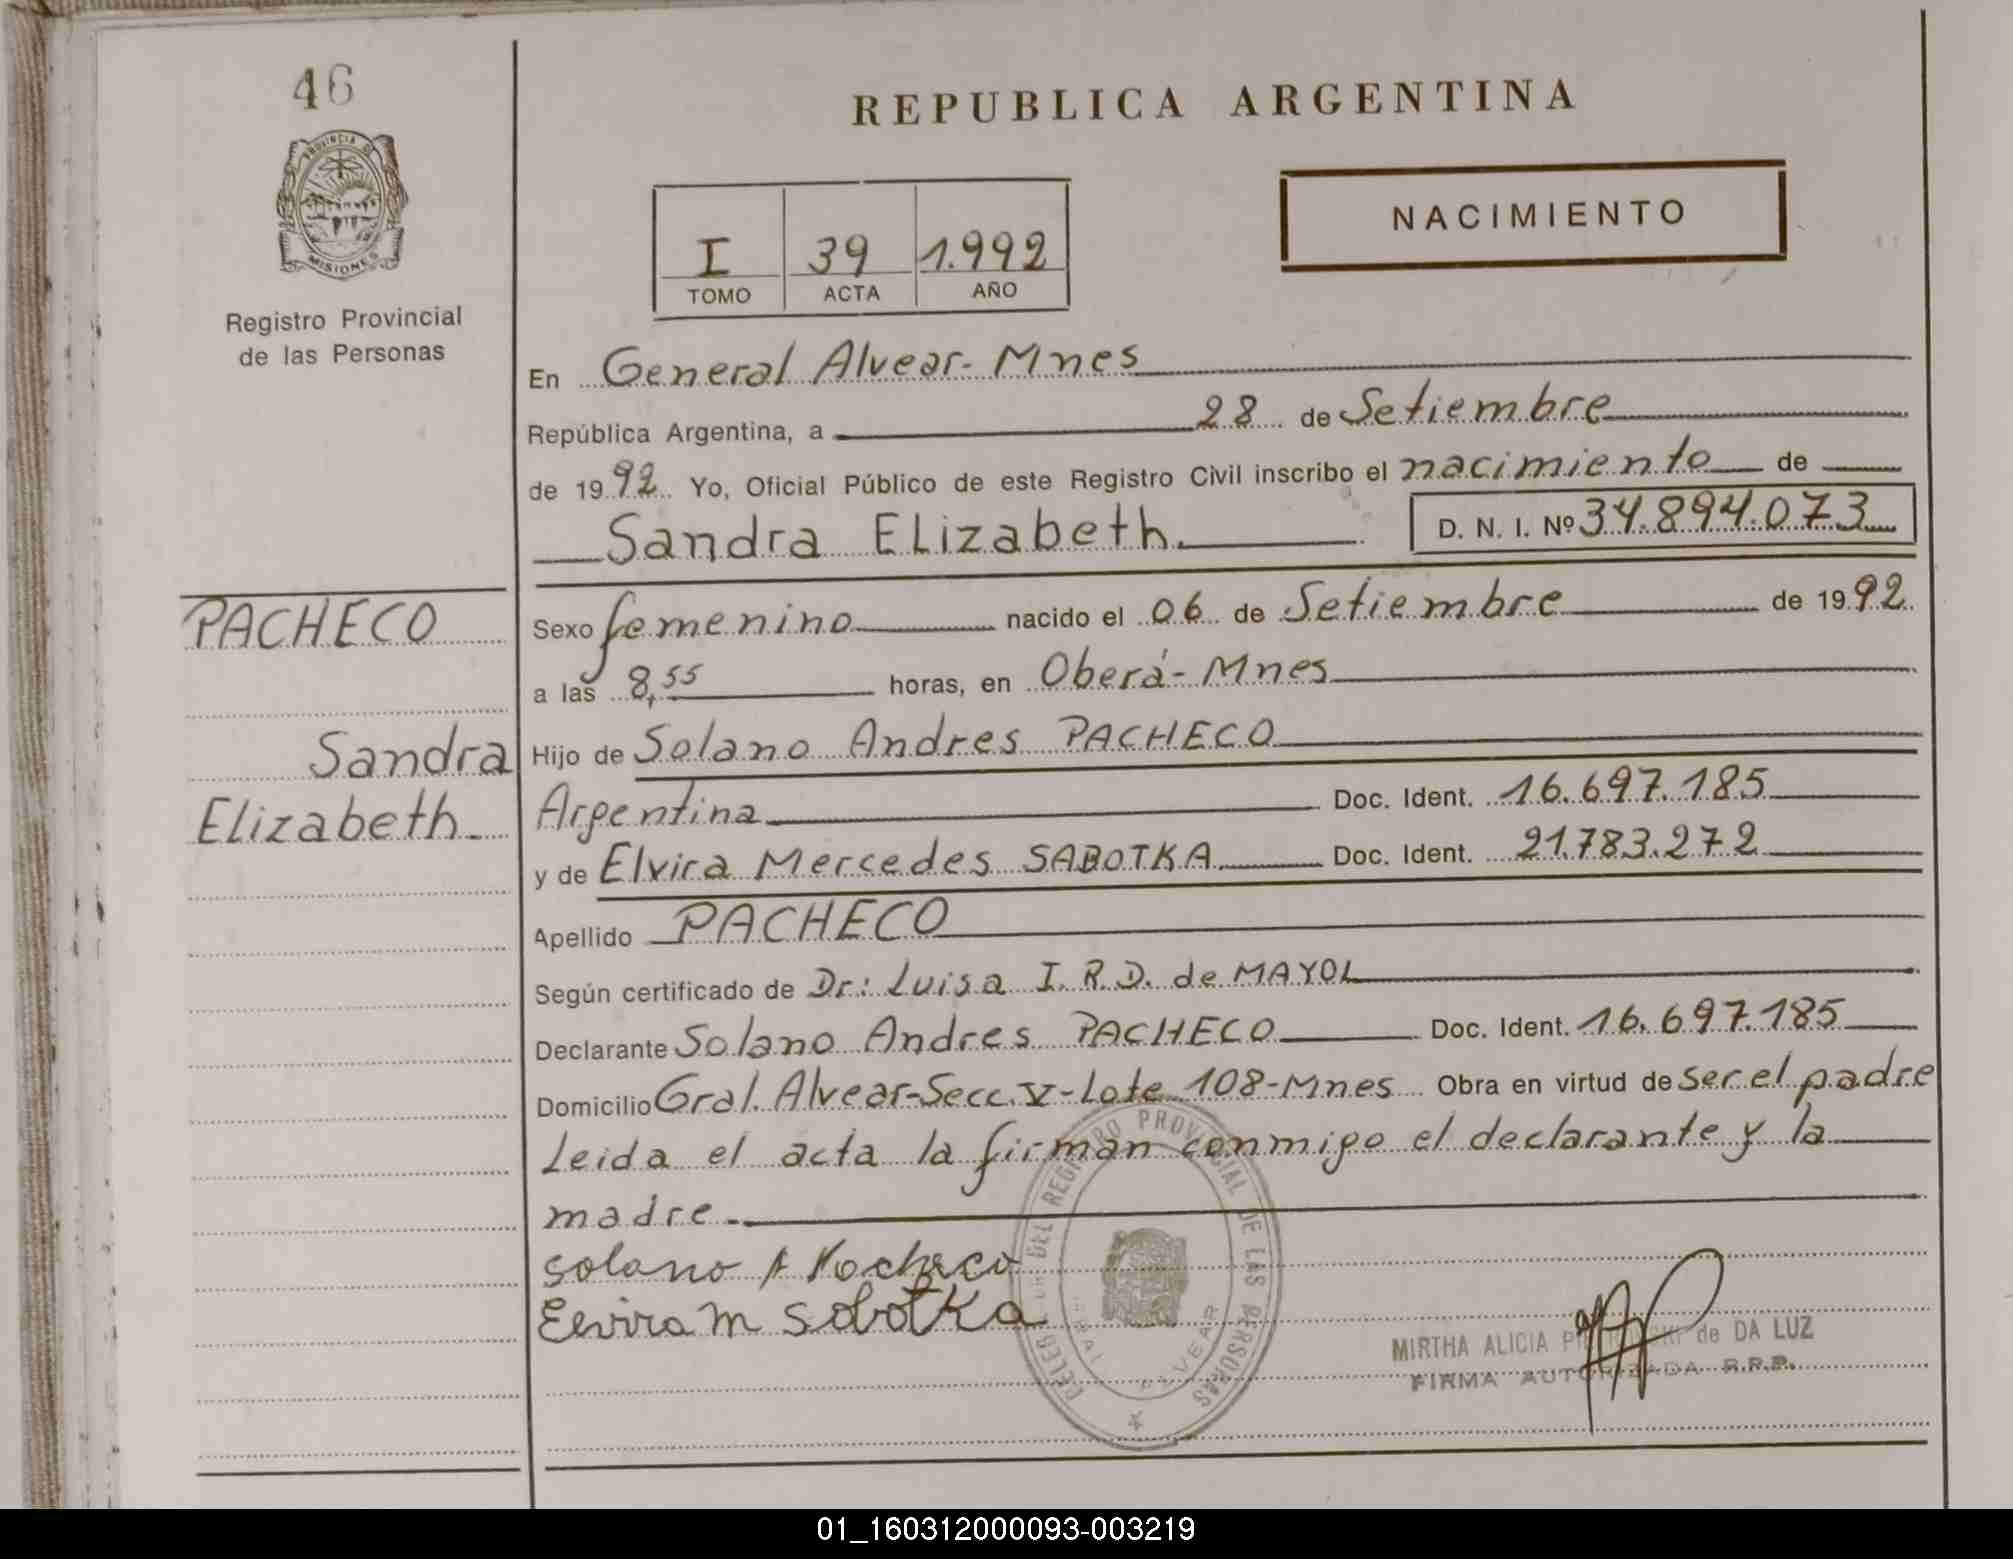 46
PROVINCIA DE
MISIONES
Registro Provincial
de las Personas
REPUBLICA ARGENTINA
NACIMIENTO
I 39 1.992
TOMO ACTA AÑO
En General Alvear - Mnes
República Argentina, a 28 de Setiembre
de 1992 Yo, Oficial Público de este Registro Civil inscribo el nacimiento de
Sandra Elizabeth. D. N. I. Nº 34.894.073
PACHECO
Sandra
Elizabeth
Sexo femenino nacido el 06 de Setiembre de 1992
a las 8,55 horas, en Oberá - Mnes
Hijo de Solano Andres PACHECO
Argentina Doc. Ident. 16.697.185
y de Elvira Mercedes SABOTKA Doc. Ident. 21.783.272
Apellido PACHECO
Según certificado de Dr: Luisa I. R. D. de MAYOL
Declarante Solano Andres PACHECO Doc. Ident. 16.697.185
Domicilio Gral. Alvear - Secc. V - Lote 108 - Mnes Obra en virtud de ser el padre
Leida el acta la firman conmigo el declarante y la
madre.
solano A Pacheco
Elvira M Sobotka
DEL REGISTRO PROVINCIAL DE LAS PERSONAS
ALVEAR
MIRTHA ALICIA de DA LUZ
FIRMA AUTORIZADA R.P.P.
01_160312000093-003219